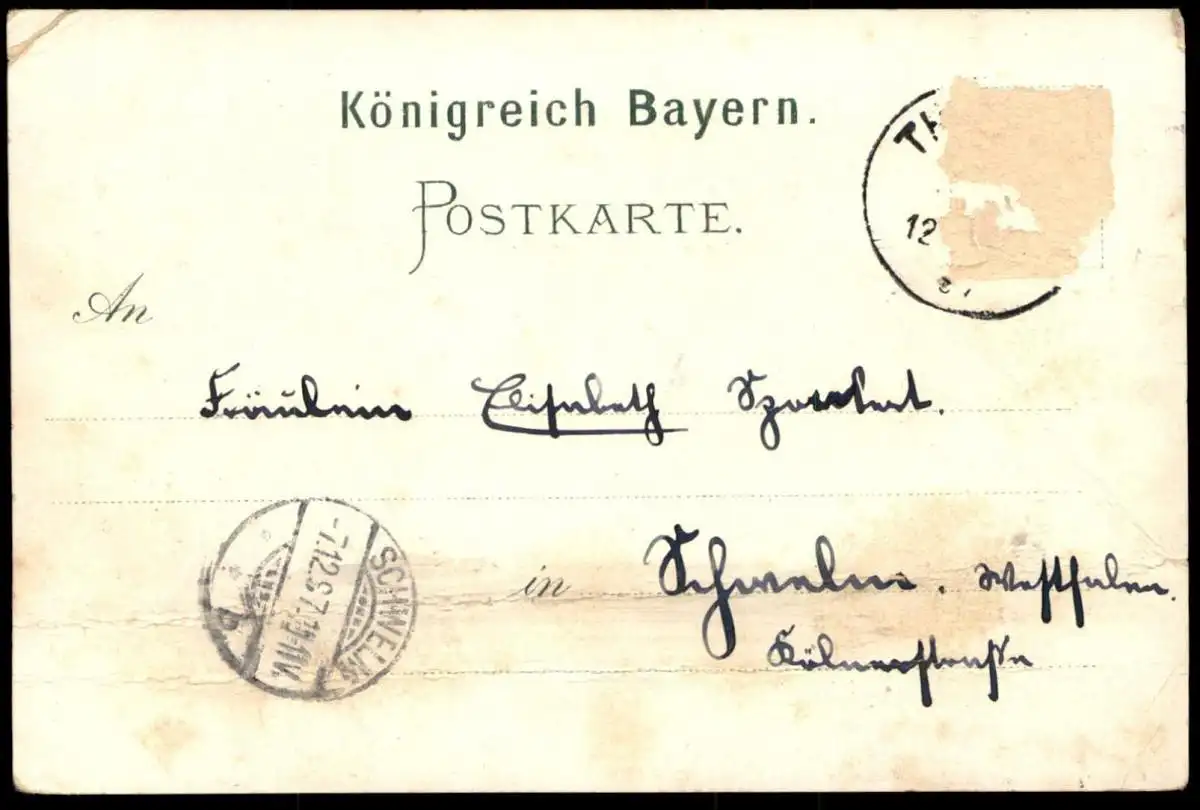 Königreich Bayern.
POSTKARTE.
12
An
Fräulein Elisabeth
SCHWELM
-7.12.97.
in Schwelm. Westfalen.
Kölnerstraße